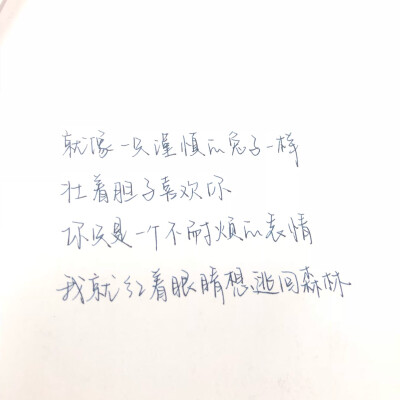 就像一只谨慎的兔子一样
壮着胆子喜欢你
你只是一个不耐烦的表情
我就红着眼睛想逃回森林